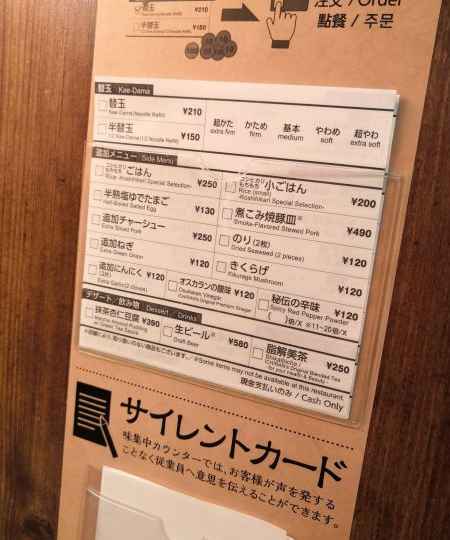 替玉 ¥210
半替玉 ¥150
注文 / Order
點餐 / 주문
替玉 Kae-Dama
替玉 ¥210
Kae-Dama (Noodle Refill)
半替玉 ¥150
1/2 Kae-Dama (1/2 Noodle Refill)
超かた かため 基本 やわめ 超やわ
extra firm firm medium soft extra soft
追加メニュー / Side Menu
コシヒカリ もちもち ごはん ¥250
Rice -Koshihikari Special Selection-
コシヒカリ もちもち 小ごはん ¥200
Rice (small)
-Koshihikari Special Selection-
半熟塩ゆでたまご ¥130
Half-Boiled Salted Egg
煮こみ焼豚皿※ ¥490
Smoke-Flavored Stewed Pork
追加チャーシュー ¥250
Extra Sliced Pork
のり(2枚) ¥120
Dried Seaweed (2 pieces)
追加ねぎ ¥120
Extra Green Onion
きくらげ ¥120
Kikurage Mushroom
追加にんにく ¥120
(2片)
Extra Garlic (2 cloves)
オスカランの酸味 ¥120
Osukaran Vinegar
Ichiran's Original Premium Vinegar
秘伝の辛味 ¥120
Spicy Red Pepper Powder
( )倍/X ※11~20倍/X
デザート/飲み物 Dessert / Drinks
抹茶杏仁豆腐 ¥390
in Green Tea Sauce
生ビール※ ¥580
Draft Beer
脂解美茶 ¥250
Ichiran's Original Blended Tea
for your Health & Beauty
※店舗により、取り扱いのない商品もございます。/ ※Some items may not be available at this restaurant.
現金支払いのみ / Cash Only
サイレントカード
味集中カウンターでは、お客様が声を発する
ことなく従業員へ意思を伝えることができます。